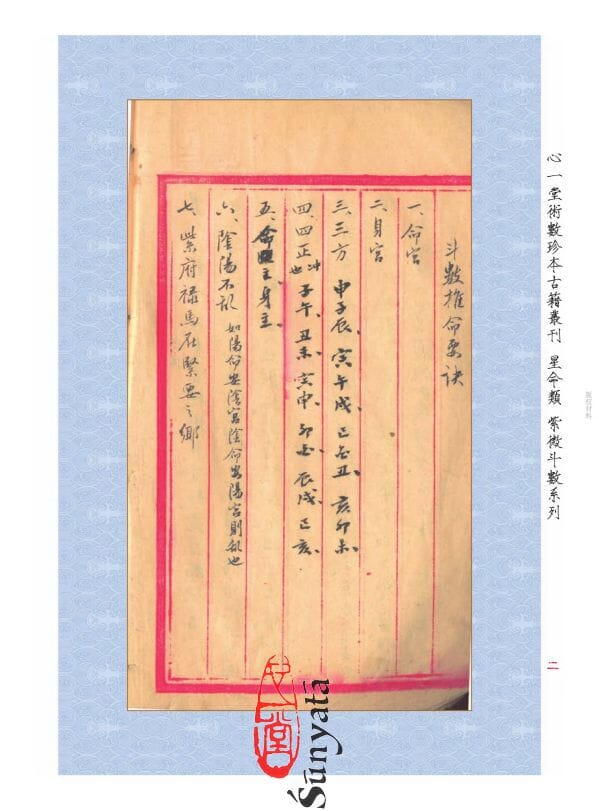 斗數推命要訣
一、命宮
二、身宮
三、三方 申子辰、寅午戌、巳酉丑、亥卯未、
四、四正 冲也 子午、丑未、寅申、卯酉、辰戌、巳亥、
五、命主、身主、
六、陰陽不亂 如陽命安陰宮陰命安陽宮則亂也
七、紫府祿馬在緊要之鄉
心一堂術數珍本古籍叢刊 星命類 紫微斗數系列
版权材料
二
心一堂
Śūnyatā